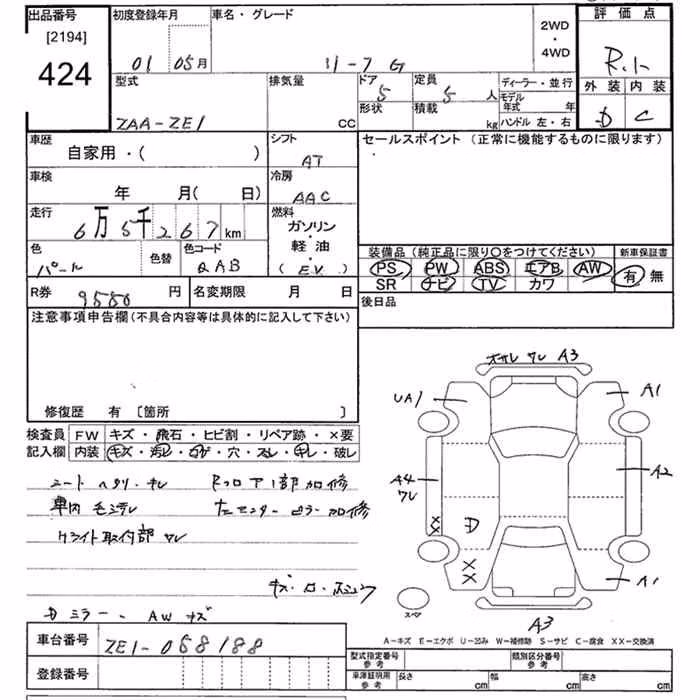 出品番号 初度登録年月 車名・グレード 2WD・4WD 評価点
[2194]
424
01 05月 リーフ G R.1
外装 内装
D C
型式 排気量 ドア 定員 ディーラー・並行
ZAA-ZE1 CC 5 5人 モデル年式 年
形状 積載 kg ハンドル 左・右
車歴 シフト セールスポイント (正常に機能するものに限ります)
自家用・( ) AT
車検 冷房
年 月( 日) AAC
走行 燃料
6万5千267km ガソリン・軽油・(EV)
色 色替 色コード 装備品(純正品に限り○をつけてください) 新車保証書
パール QAB PS PW ABS エアB AW 有 無
SR ナビ TV カワ
R券 9550円 名変期限 月 日 後日品
注意事項申告欄(不具合内容等は具体的に記入して下さい)
修復歴 有 [箇所 ]
検査員 FW キズ・飛石・ヒビ割・リペア跡・×要
記入欄 内装 キズ・汚レ・コゲ・穴・スレ・キレ・破レ
シートヘタリ・キレ Rフロア1部加修
車内毛シテレ 左センターピラー加修
Cライト取付部ワレ
キズ・ロ・
Dミラー、AWキズ
ワレ A3
UA1 A1
A4 ワレ A2
XX D
XX A1
スペア
A3
A-キズ E-エクボ U-凹み W-補修跡 S-サビ C-腐食 XX-交換済
車台番号 ZE1-058188
型式指定番号 参考 類別区分番号 参考
登録番号
車庫証明用 参考 長さ cm 幅 cm 高さ cm